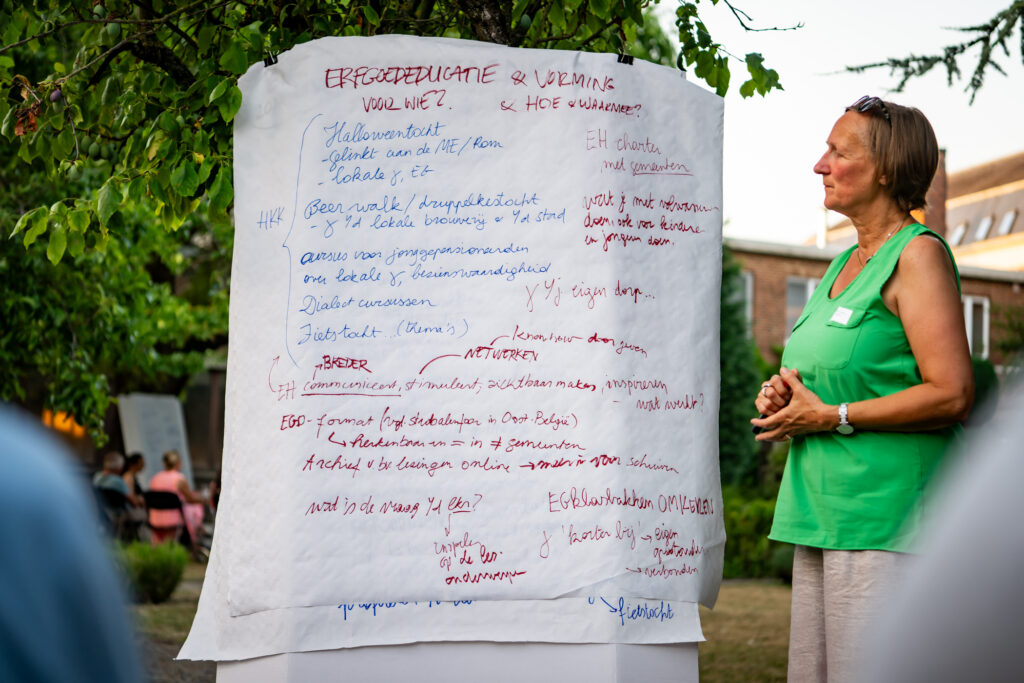 ERFGOEDEDUCATIE & VORMING
VOOR WIE?
& HOE & WAARMEE?
HKK
Halloweentocht
- gelinkt aan de ME/Rom
- lokale g, EG
Beer walk / druppelkestocht
- g v/d lokale brouwerij & v/d stad
cursus voor jonggepensioneerden
over lokale g, bezienswaardigheid
Dialect cursussen
Fietstocht ... (thema's)
EH charter
met gemeenten
wat j met volwassenen
doen ook voor kinderen
en jongeren doen.
eigen dorp...
BREDER
NETWERKEN
know how doorgeven
EH communiceert, stimuleert, zichtbaar maken, inspireren
- wat werkt?
EGD - format (vgl. in Oost-België)
Herkenbaar in = in ≠ gemeenten
Archief v bv lezingen online → meer naar voor schuiven
wat is de vraag v/d lkr?
inspelen
op de les
onderwerpen
EGB OMKEREN
g 'korter bij' → eigen
→ verbonden
fietstocht